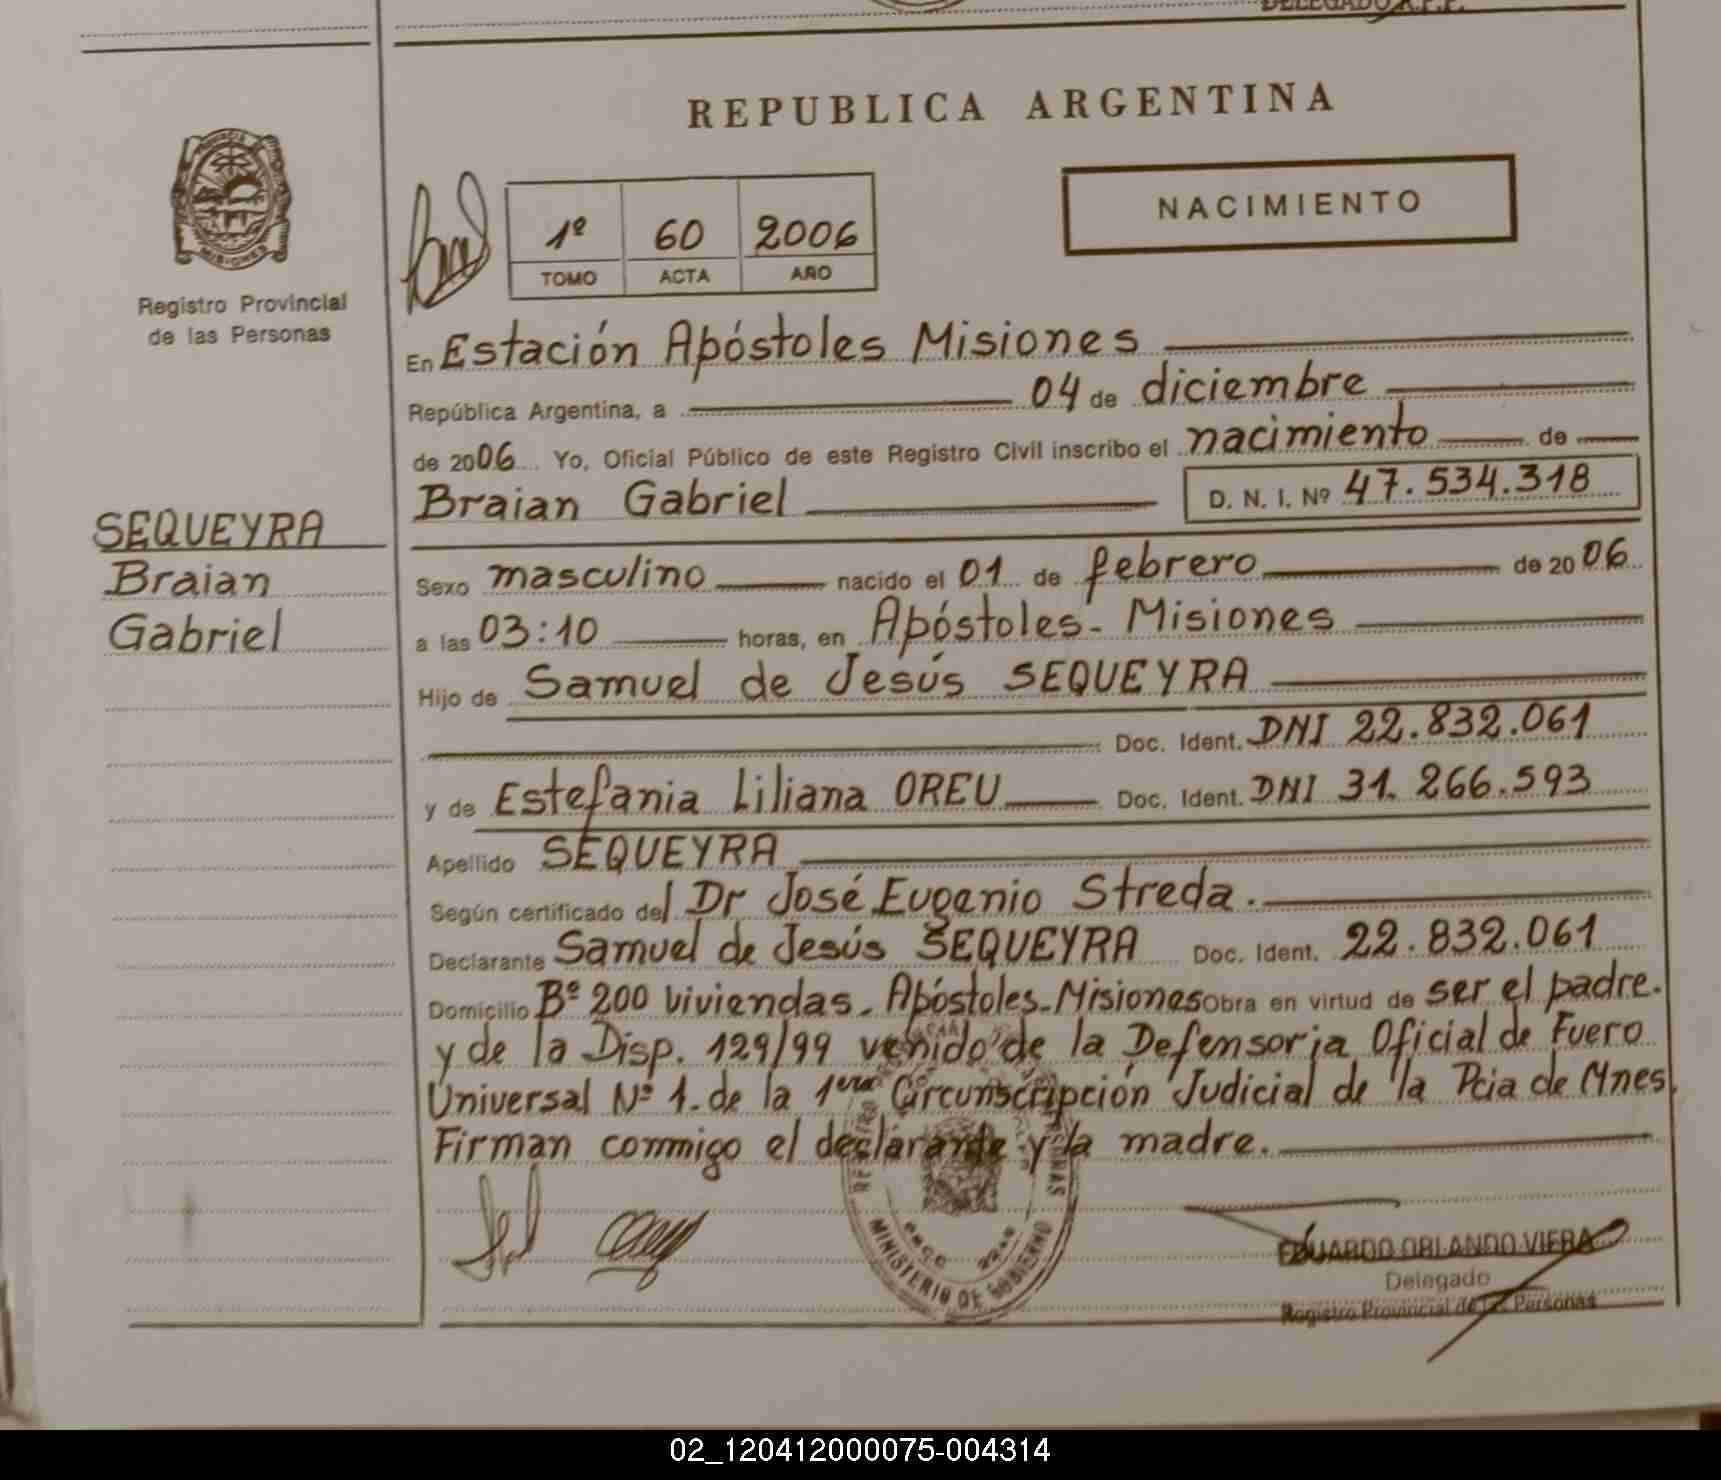 REPUBLICA ARGENTINA
NACIMIENTO
1º 60 2006
TOMO ACTA AÑO
PROVINCIA DE
MISIONES
Registro Provincial
de las Personas
En Estación Apóstoles Misiones
República Argentina, a 04 de diciembre
de 2006 Yo, Oficial Público de este Registro Civil inscribo el nacimiento de
Braian Gabriel D. N. I. Nº 47.534.318
SEQUEYRA
Braian
Gabriel
Sexo masculino nacido el 01 de febrero de 2006
a las 03:10 horas, en Apóstoles - Misiones
Hijo de Samuel de Jesús SEQUEYRA
Doc. Ident. DNI 22.832.061
y de Estefania Liliana OREU Doc. Ident. DNI 31.266.593
Apellido SEQUEYRA
Según certificado del Dr José Eugenio Streda.
Declarante Samuel de Jesús SEQUEYRA Doc. Ident. 22.832.061
Domicilio Bº 200 viviendas - Apóstoles - Misiones Obra en virtud de ser el padre.
y de la Disp. 129/99 venido de la Defensoria Oficial de Fuero
Universal Nº 1. de la 1era Circunscripción Judicial de la Pcia de Mnes.
Firman conmigo el declarante y la madre.
MINISTERIO DE GOBIERNO
EDUARDO ORLANDO VIERA
Delegado
Registro Provincial de las Personas
02_120412000075-004314